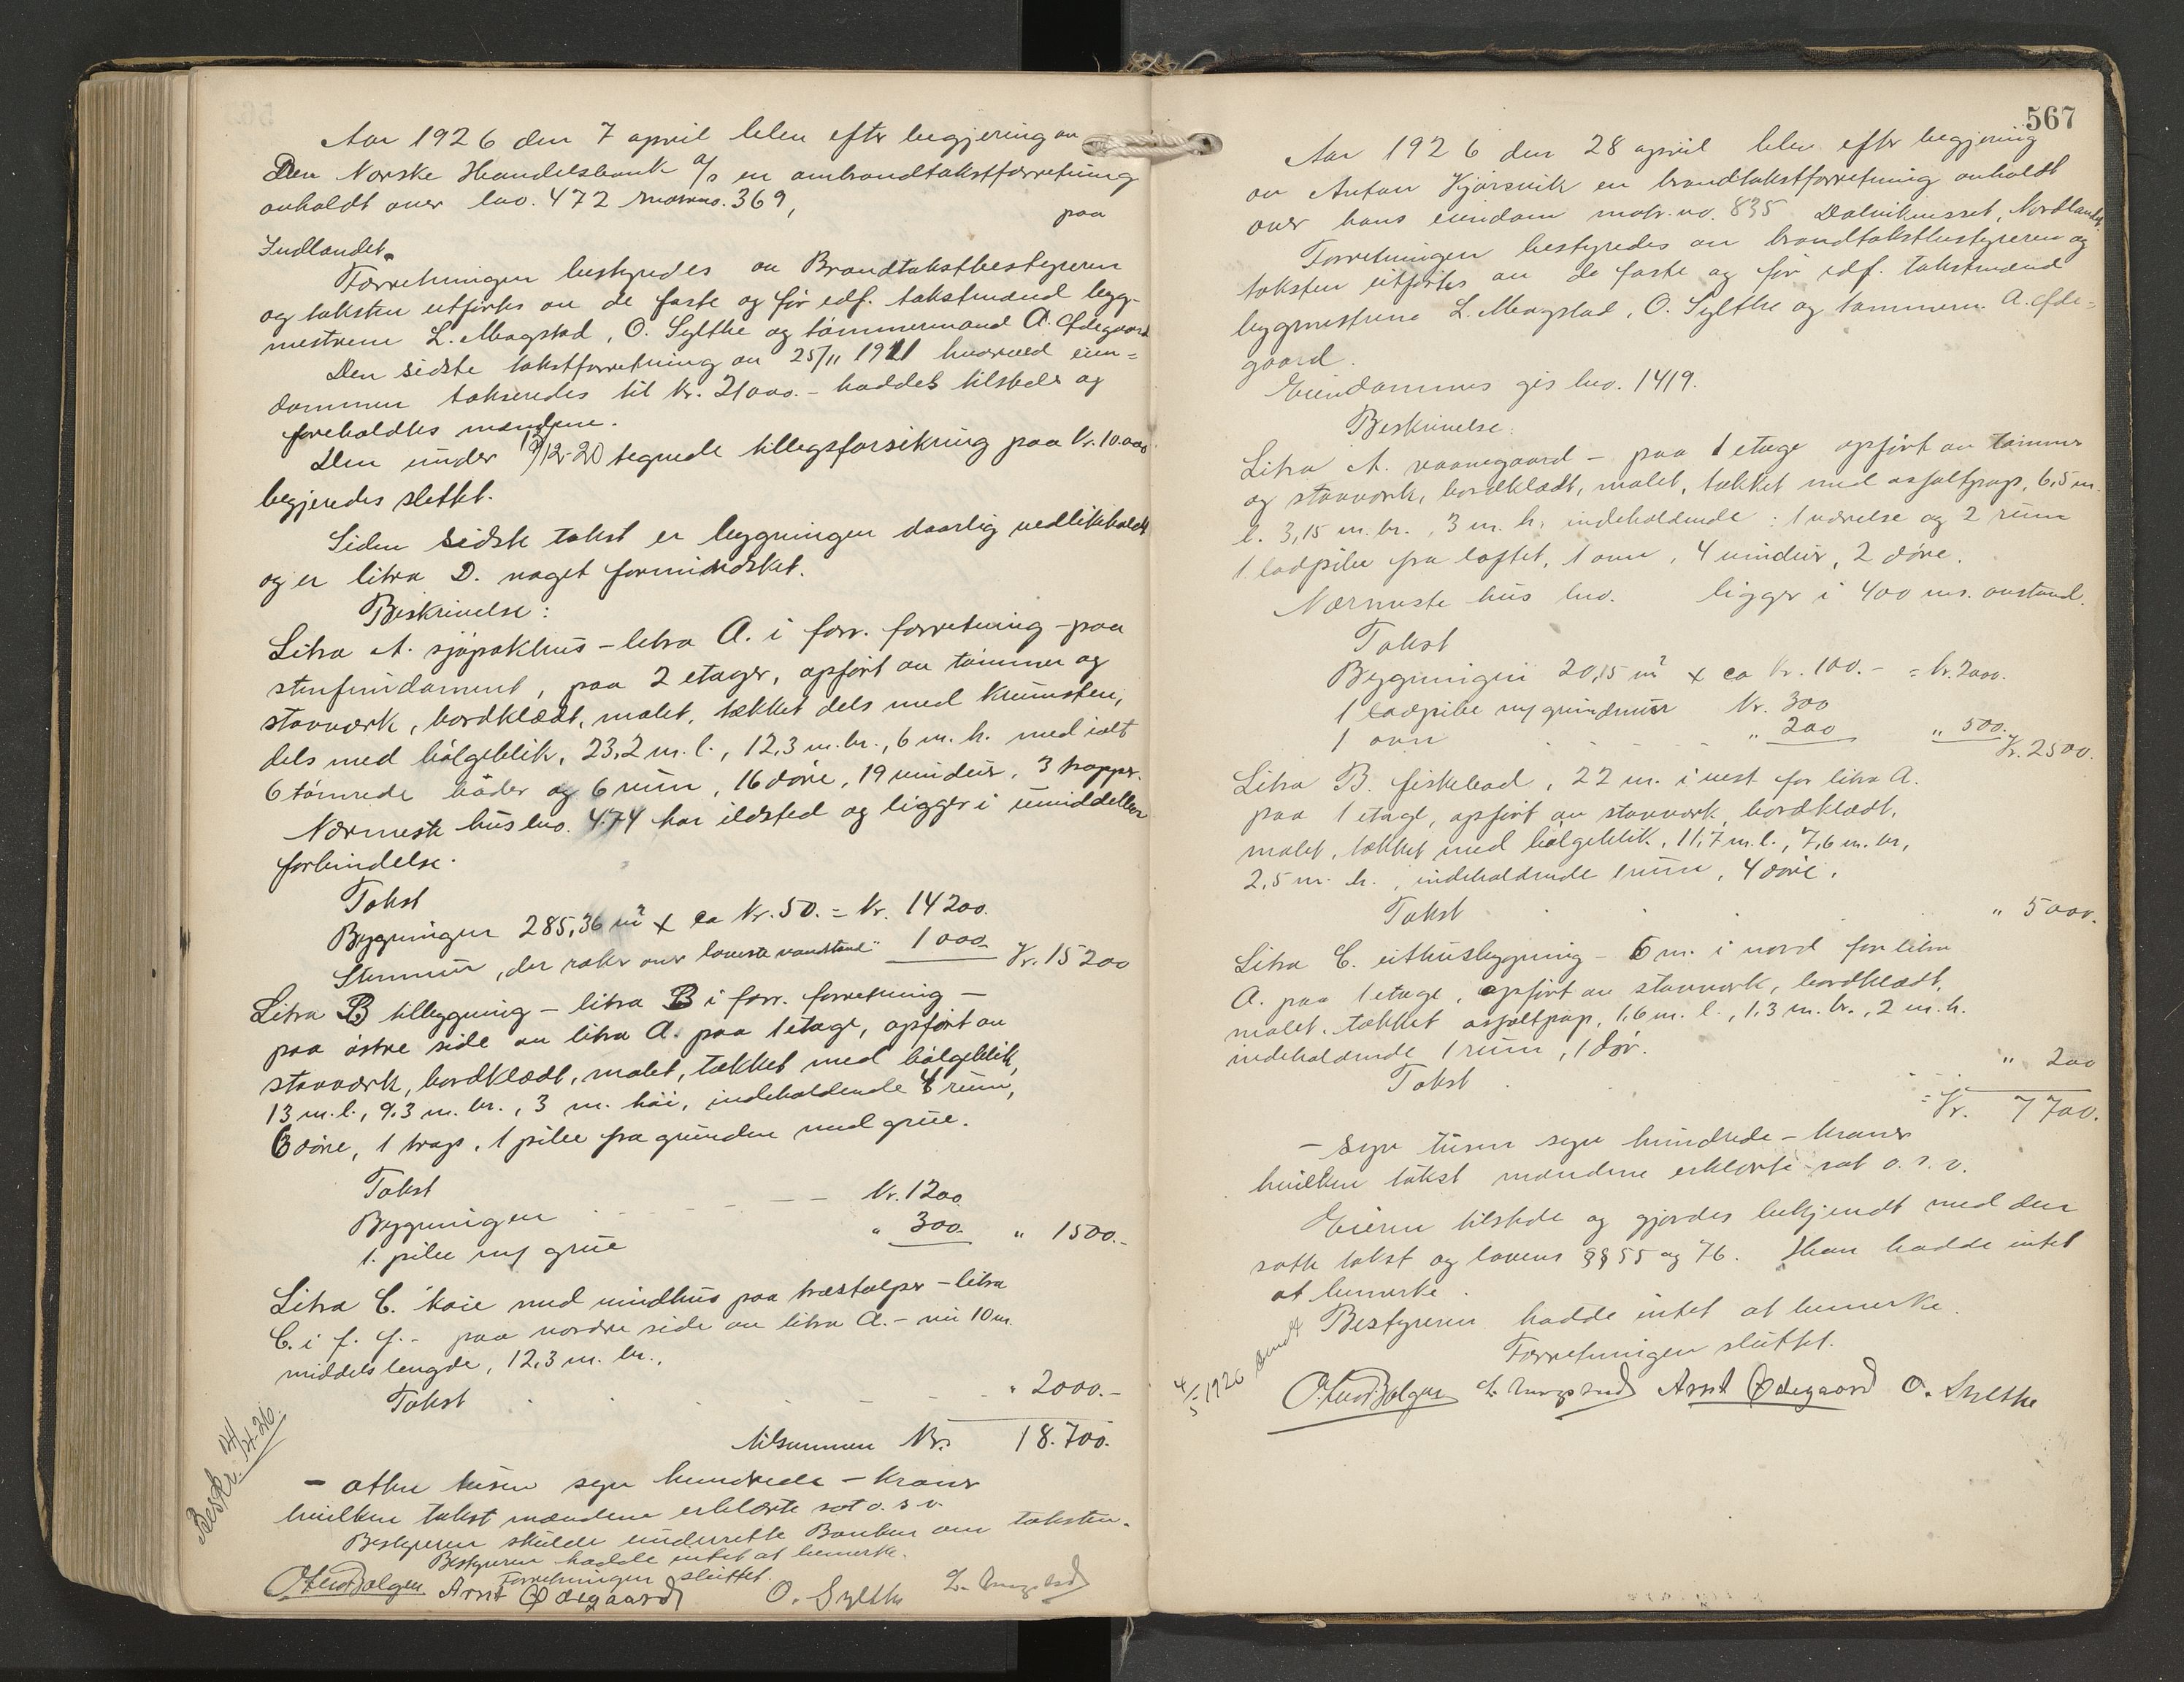 Aar 1926 den 7 april blev efter begjering av
Den Norske Handelsbank a/s en ombrandtakstforretning
avholdt over bno. 472 matr.no. 369,
paa
Indlandet.
Forretningen bestyredes av Brandtakstbestyreren
og taksten utførtes av de faste og før edf. takstmænd bygg-
mestrene L. Magstad, O. Sylthe og tømmermand A. Ødegaard
Den sidste takstforretning av 25/11 1921 hvorved eien=
dommen takseredes til kr. 21000.- haddes tilstede og
foreholdtes mændene.
Den under 13/12-20 tegnede tillegsforsikring paa kr. 10.000
begjeredes slettet.
Siden sidste takst er bygningen daarlig vedlikeholdt
og er litra D. noget forminsket.
Beskrivelse:
Litra A. sjøpakhus - litra A. i forr. forretning - paa
stenfundament, paa 2 etager, opført av tømmer og
stavverk, bordklædt, malet, tækket dels med krumsten,
dels med bølgeblik, 23,2 m. l., 12,3 m. br., 6 m. h. med ialt
6 tømrede boder og 6 rum, 16 døre, 19 vinduer, 3 trapper.
Nærmeste hus bno. 474 har ildsted og ligger i umiddelbar
forbindelse.
Takst
Bygningen 285,36 m² x ca kr. 50. = kr. 14200.
Stenmur, der raker over laveste vandstand " 1000. kr. 15200
Litra B tilbygning - litra B i forr. forretning -
paa østre side av litra A. paa 1 etage, opført av
stavverk, bordklædt, malet, tækket med bølgeblik,
13 m. l., 9.3 m. br., 3 m. høi, indeholdende 4 rum,
6 døre, 1 trap, 1 pibe fra grunden med grue.
Takst
Bygningen kr. 1200
1. pibe m/ grue " 300. " 1500.-
Litra C. kaie med vindhus paa træstolper - litra
C. i f. f. - paa nordre side av litra A. - nu 10 m.
middels lengde, 12,3 m. br.,
Takst " 2000.-
tilsammen kr. 18.700.
- atten tusen syv hundrede - kroner
hvilken takst mændene erklærte sat o. s. v.
Bestyreren skulde underrette Banken om taksten.
Bestyreren hadde intet at bemerke.
Forretningen sluttet.
Arnt Ødegaard O. Sylthe L. Magstad
Beskr. 14/4-26.
567
Aar 1926 den 28 april blev efter begjering
av Anton Kjørsvik en brandtakstforretning avholdt
over hans eiendom matr. no. 835 Dalviknesset, Nordlandet.
Forretningen bestyredes av brandtakstbestyreren og
taksten utførtes av de faste og før edf. takstmænd
bygmestrene L. Magstad, O. Sylthe og tømmerm. A. Øde=
gaard.
Eiendommens gis bno. 1419.
Beskrivelse:
Litra A. vaanegaard - paa 1 etage opført av tømmer
og stavverk, bordklædt, malet, tækket med asfaltpap, 6,5 m.
l. 3,15 m. br., 3 m. h. indeholdende: 1 værelse og 2 rum
1 ladpibe fra loftet, 1 ovn, 4 vinduer, 2 døre.
Nærmeste hus bno. ligger i 400 ms. avstand.
Takst
Bygningen 20,15 m² x ca kr. 100.- = kr. 2000.
1 ladpibe m/ grundmur kr. 300
1 ovn " 200 " 500. kr. 2500.
Litra B. fiskebod, 22 m. i vest for litra A.
paa 1 etage, opført av stavverk, bordklædt,
malet, tækket med bølgeblik, 11,7 m. l., 7,6 m. br,
2,5 m. h., indeholdende 1 rum, 4 døre.
Takst " 5000.
Litra C. uthusbygning - 6 m. i nord for litra
A. paa 1 etage, opført av stavverk, bordklædt,
malet, tækket asfaltpap, 1,6 m. l., 1,3 m. br., 2 m. h.
indeholdende 1 rum, 1 dør.
Takst " 200
= Kr. 7700.
- syv tusen syv hundrede - kroner
hvilken takst mændene erklærte sat o. s. v.
Eieren tilstede og gjordes bekjendt med den
satte takst og lovens §§ 55 og 76. Han hadde intet
at bemerke.
Bestyreren hadde intet at bemerke.
Forretningen sluttet.
4/5 1926 sendt
L. Magstad Arnt Ødegaard O. Sylthe